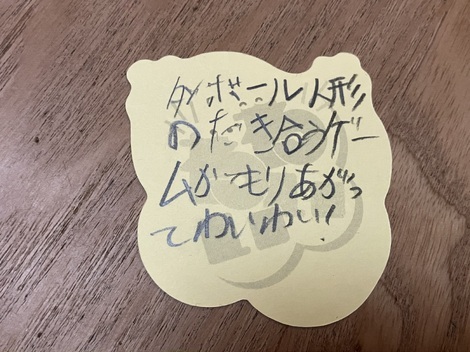 ダンボール人形
のだき合うゲー
ムがもりあがっ
てわいわい!